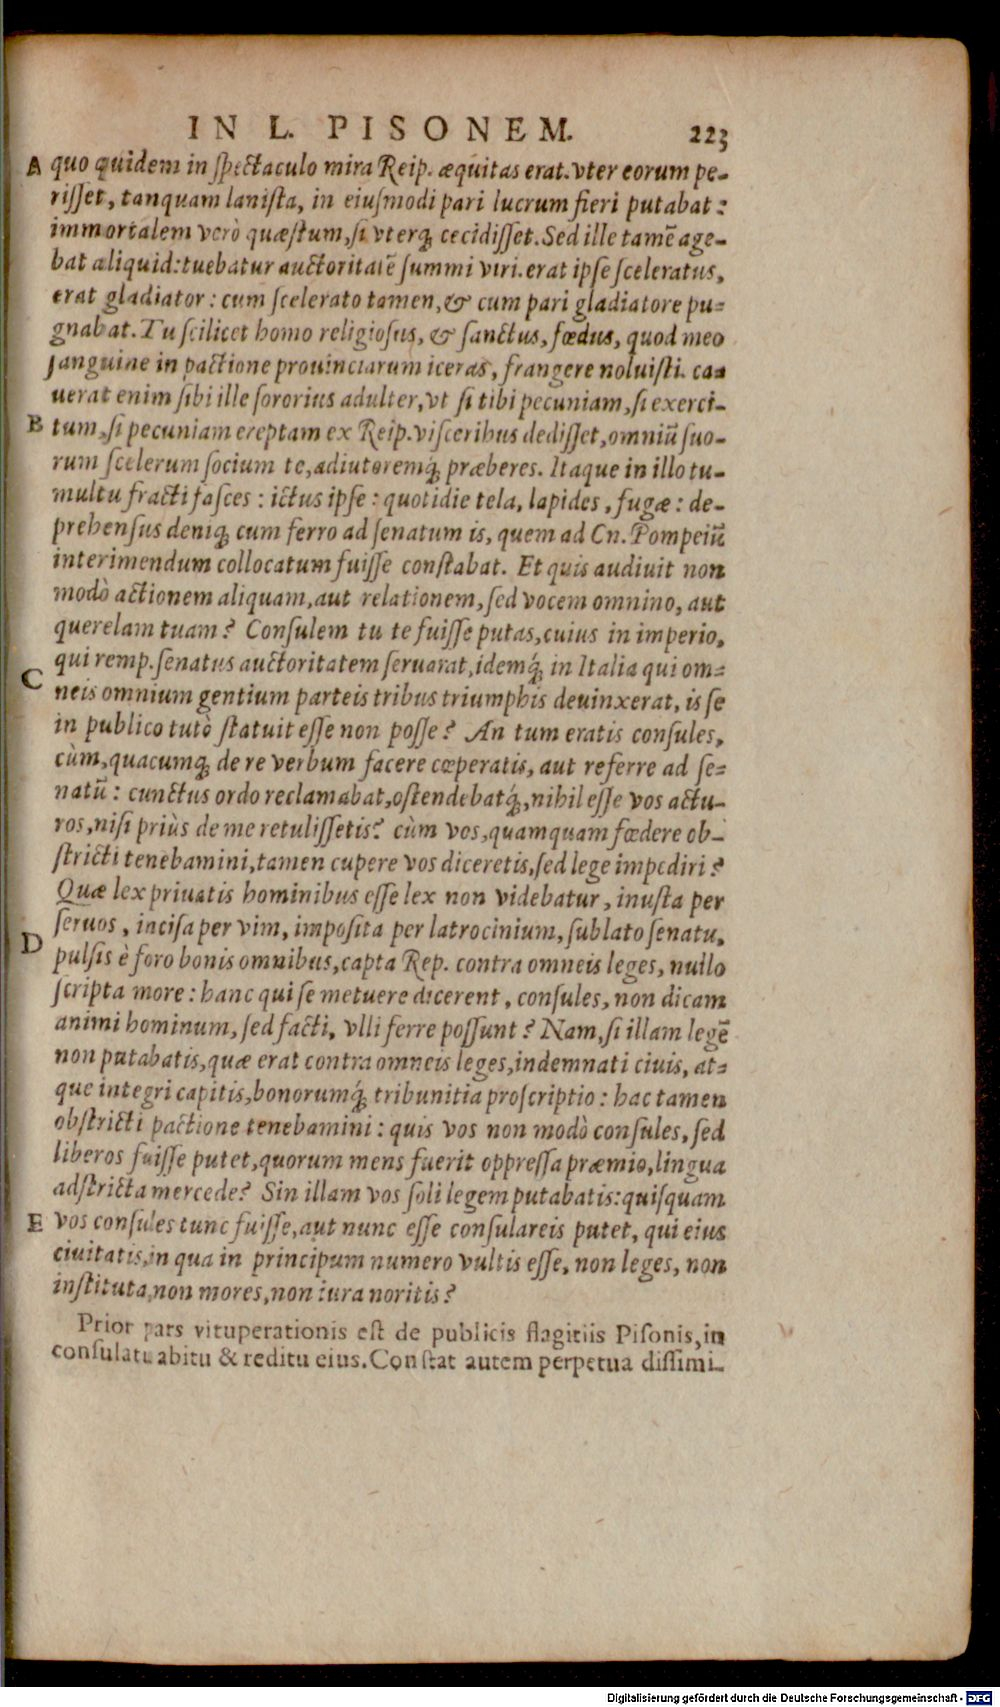 IN L. PISONEM. 223
A quo quidem in ſpectaculo mira Reip. æquitas erat. vter eorum pe-
riſſet, tanquam laniſta, in eiuſmodi pari lucrum fieri putabat:
immortalem verò quæſtum, ſi vterq; cecidiſſet. Sed ille tamē age-
bat aliquid: tuebatur auctoritatē ſummi viri. erat ipſe ſceleratus,
erat gladiator: cum ſcelerato tamen, & cum pari gladiatore pu-
gnabat. Tu ſcilicet homo religioſus, & ſanctus, fœdus, quod meo
ſanguine in pactione prouinciarum iceras, frangere noluiſti. ca-
uerat enim ſibi ille ſororius adulter, vt ſi tibi pecuniam, ſi exerci-
B tum, ſi pecuniam ereptam ex Reip. viſceribus dediſſet, omniū ſuo-
rum ſcelerum ſocium te, adiutoremq́; præberes. Itaque in illo tu-
multu fracti faſces: ictus ipſe: quotidie tela, lapides, fugæ: de-
prehenſus deniq; cum ferro ad ſenatum is, quem ad Cn. Pompeiū
interimendum collocatum fuiſſe conſtabat. Et quis audiuit non
modò actionem aliquam, aut relationem, ſed vocem omnino, aut
querelam tuam? Conſulem tu te fuiſſe putas, cuius in imperio,
C qui remp. ſenatus auctoritatem ſeruarat, idemq́; in Italia qui om-
neis omnium gentium parteis tribus triumphis deuinxerat, is ſe
in publico tutò ſtatuit eſſe non poſſe? An tum eratis conſules,
cùm, quacumq; de re verbum facere cœperatis, aut referre ad ſe-
natū: cunctus ordo reclamabat, oſtendebatq́;, nihil eſſe vos actu-
ros, niſi priùs de me retuliſſetis? cùm vos, quamquam fœdere ob-
ſtricti tenebamini, tamen cupere vos diceretis, ſed lege impediri?
Quæ lex priuatis hominibus eſſe lex non videbatur, inuſta per
D ſeruos, inciſa per vim, impoſita per latrocinium, ſublato ſenatu,
pulſis è foro bonis omnibus, capta Rep. contra omneis leges, nullo
ſcripta more: hanc qui ſe metuere dicerent, conſules, non dicam
animi hominum, ſed facti, vlli ferre poſſunt? Nam, ſi illam legē
non putabatis, quæ erat contra omneis leges, indemnati ciuis, at-
que integri capitis, bonorumq́; tribunitia proſcriptio: hac tamen
obſtricti pactione tenebamini: quis vos non modò conſules, ſed
liberos fuiſſe putet, quorum mens fuerit oppreſſa præmio, lingua
adſtricta mercede? Sin illam vos ſoli legem putabatis: quiſquam
E vos conſules tunc fuiſſe, aut nunc eſſe conſulareis putet, qui eius
ciuitatis, in qua in principum numero vultis eſſe, non leges, non
inſtituta, non mores, non iura noritis?
Prior pars vituperationis eſt de publicis flagitiis Piſonis, in
conſulatu abitu & reditu eius. Conſtat autem perpetua diſſimi-
Digitalisierung gefördert durch die Deutsche Forschungsgemeinschaft - DFG